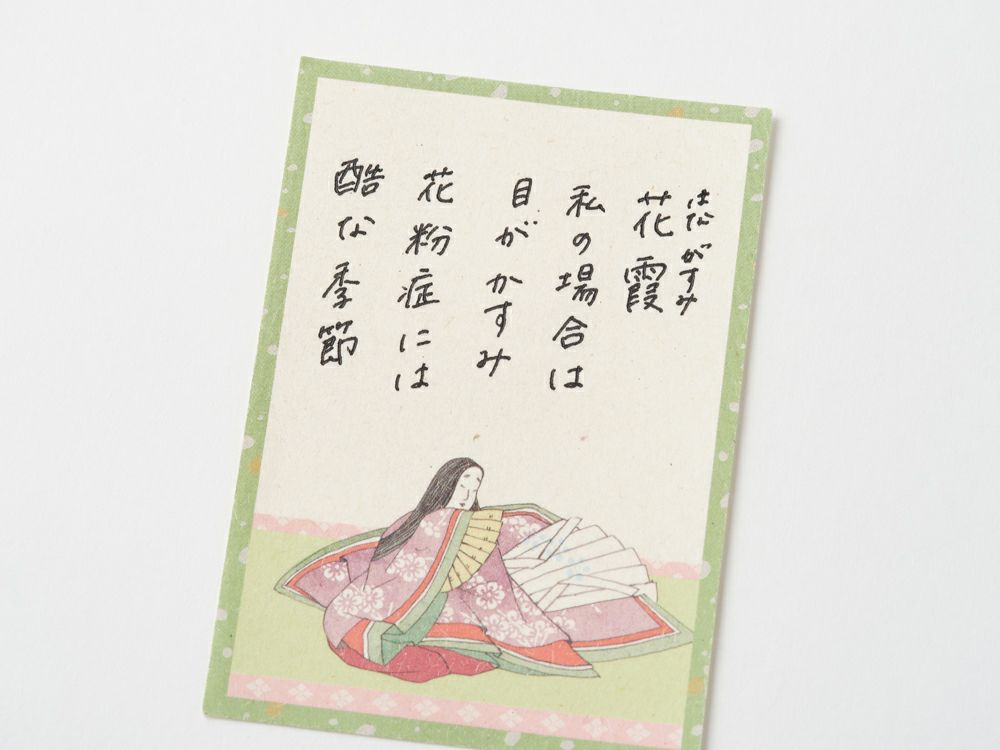 はながすみ
花霞
私の場合は
目がかすみ
花粉症には
酷な季節